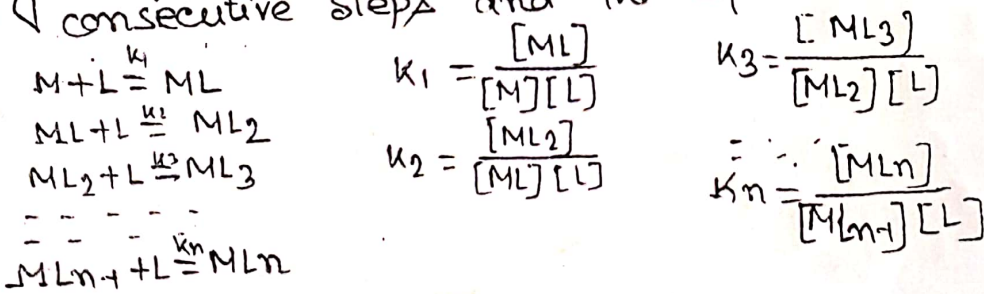 consecutive steps and in
M+L K1= ML
ML+L K2= ML2
ML2+L K3= ML3
- - - - -
- - - - -
MLn-1 +L Kn= MLn
K1 = [ML] / [M][L]
K2 = [ML2] / [ML][L]
K3 = [ML3] / [ML2][L]
Kn = [MLn] / [MLn-1][L]